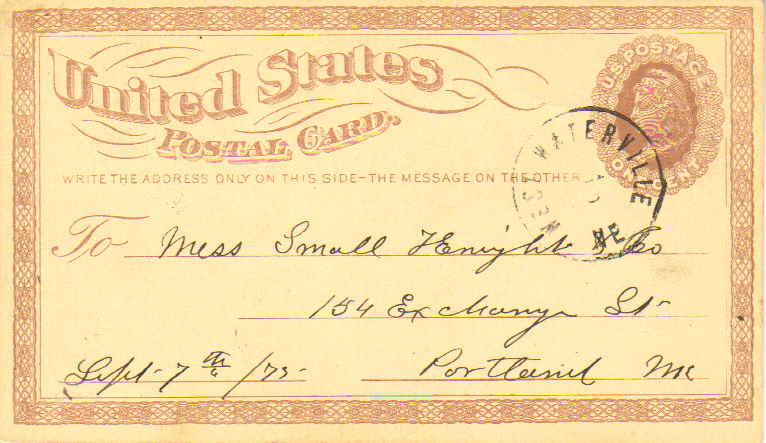 United States
POSTAL CARD.
U.S. POSTAGE
ONE CENT
WRITE THE ADDRESS ONLY ON THIS SIDE–THE MESSAGE ON THE OTHER
WEST WATERVILLE
ME
To Mess Small Knight & Co
154 Exchange St
Sept 7th /75 Portland Me